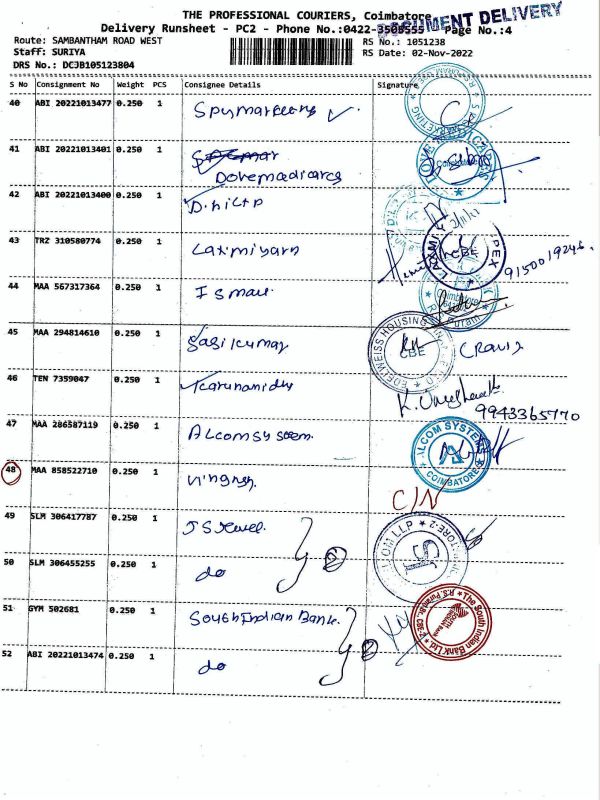 THE PROFESSIONAL COURIERS, Coimbatore
DOCUMENT DELIVERY
Delivery Runsheet - PC2 - Phone No.:0422-3508555 Page No.:4
Route: SAMBANTHAM ROAD WEST
RS No.: 1051238
Staff: SURIYA
RS Date: 02-Nov-2022
DRS No.: DCJB105123804
S No Consignment No Weight PCS Consignee Details Signature
40 ABI 20221013477 0.250 1
41 ABI 20221013401 0.250 1
Dovemadicarcs
42 ABI 20221013400 0.250 1
43 TRZ 310580774 0.250 1 Laxmiyarn
9150019246.
44 MAA 567317364 0.250 1 Ismail
45 MAA 294814610 0.250 1 Sasikumar
EDELWEISS HOUSING
CBE
46 TEN 7359047 0.250 1 Karunanidhy
9943365770
47 MAA 286587119 0.250 1 Alcomsystem.
ALCOM SYSTEM
COIMBATORE
48 MAA 858522710 0.250 1
C/N
49 SLM 306417787 0.250 1 JS Jewel
50 SLM 306455255 0.250 1 do
51 GYM 502681 0.250 1 South Indian Bank.
The South Indian Bank Ltd.
52 ABI 20221013474 0.250 1 do